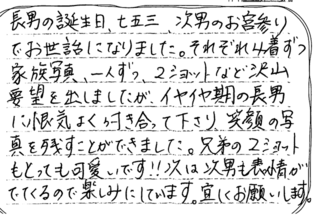 長男の誕生日、七五三、次男のお宮参り
でお世話になりました。それぞれ4着ずつ
家族写真、一人ずつ、2ショットなど沢山
要望を出しましたが、イヤイヤ期の長男
に根気よく付き合って下さり、笑顔の写
真を残すことができました。兄弟の2ショット
もとっても可愛いです!!次は次男も表情が
でてくるので楽しみにしています。宜しくお願いします。